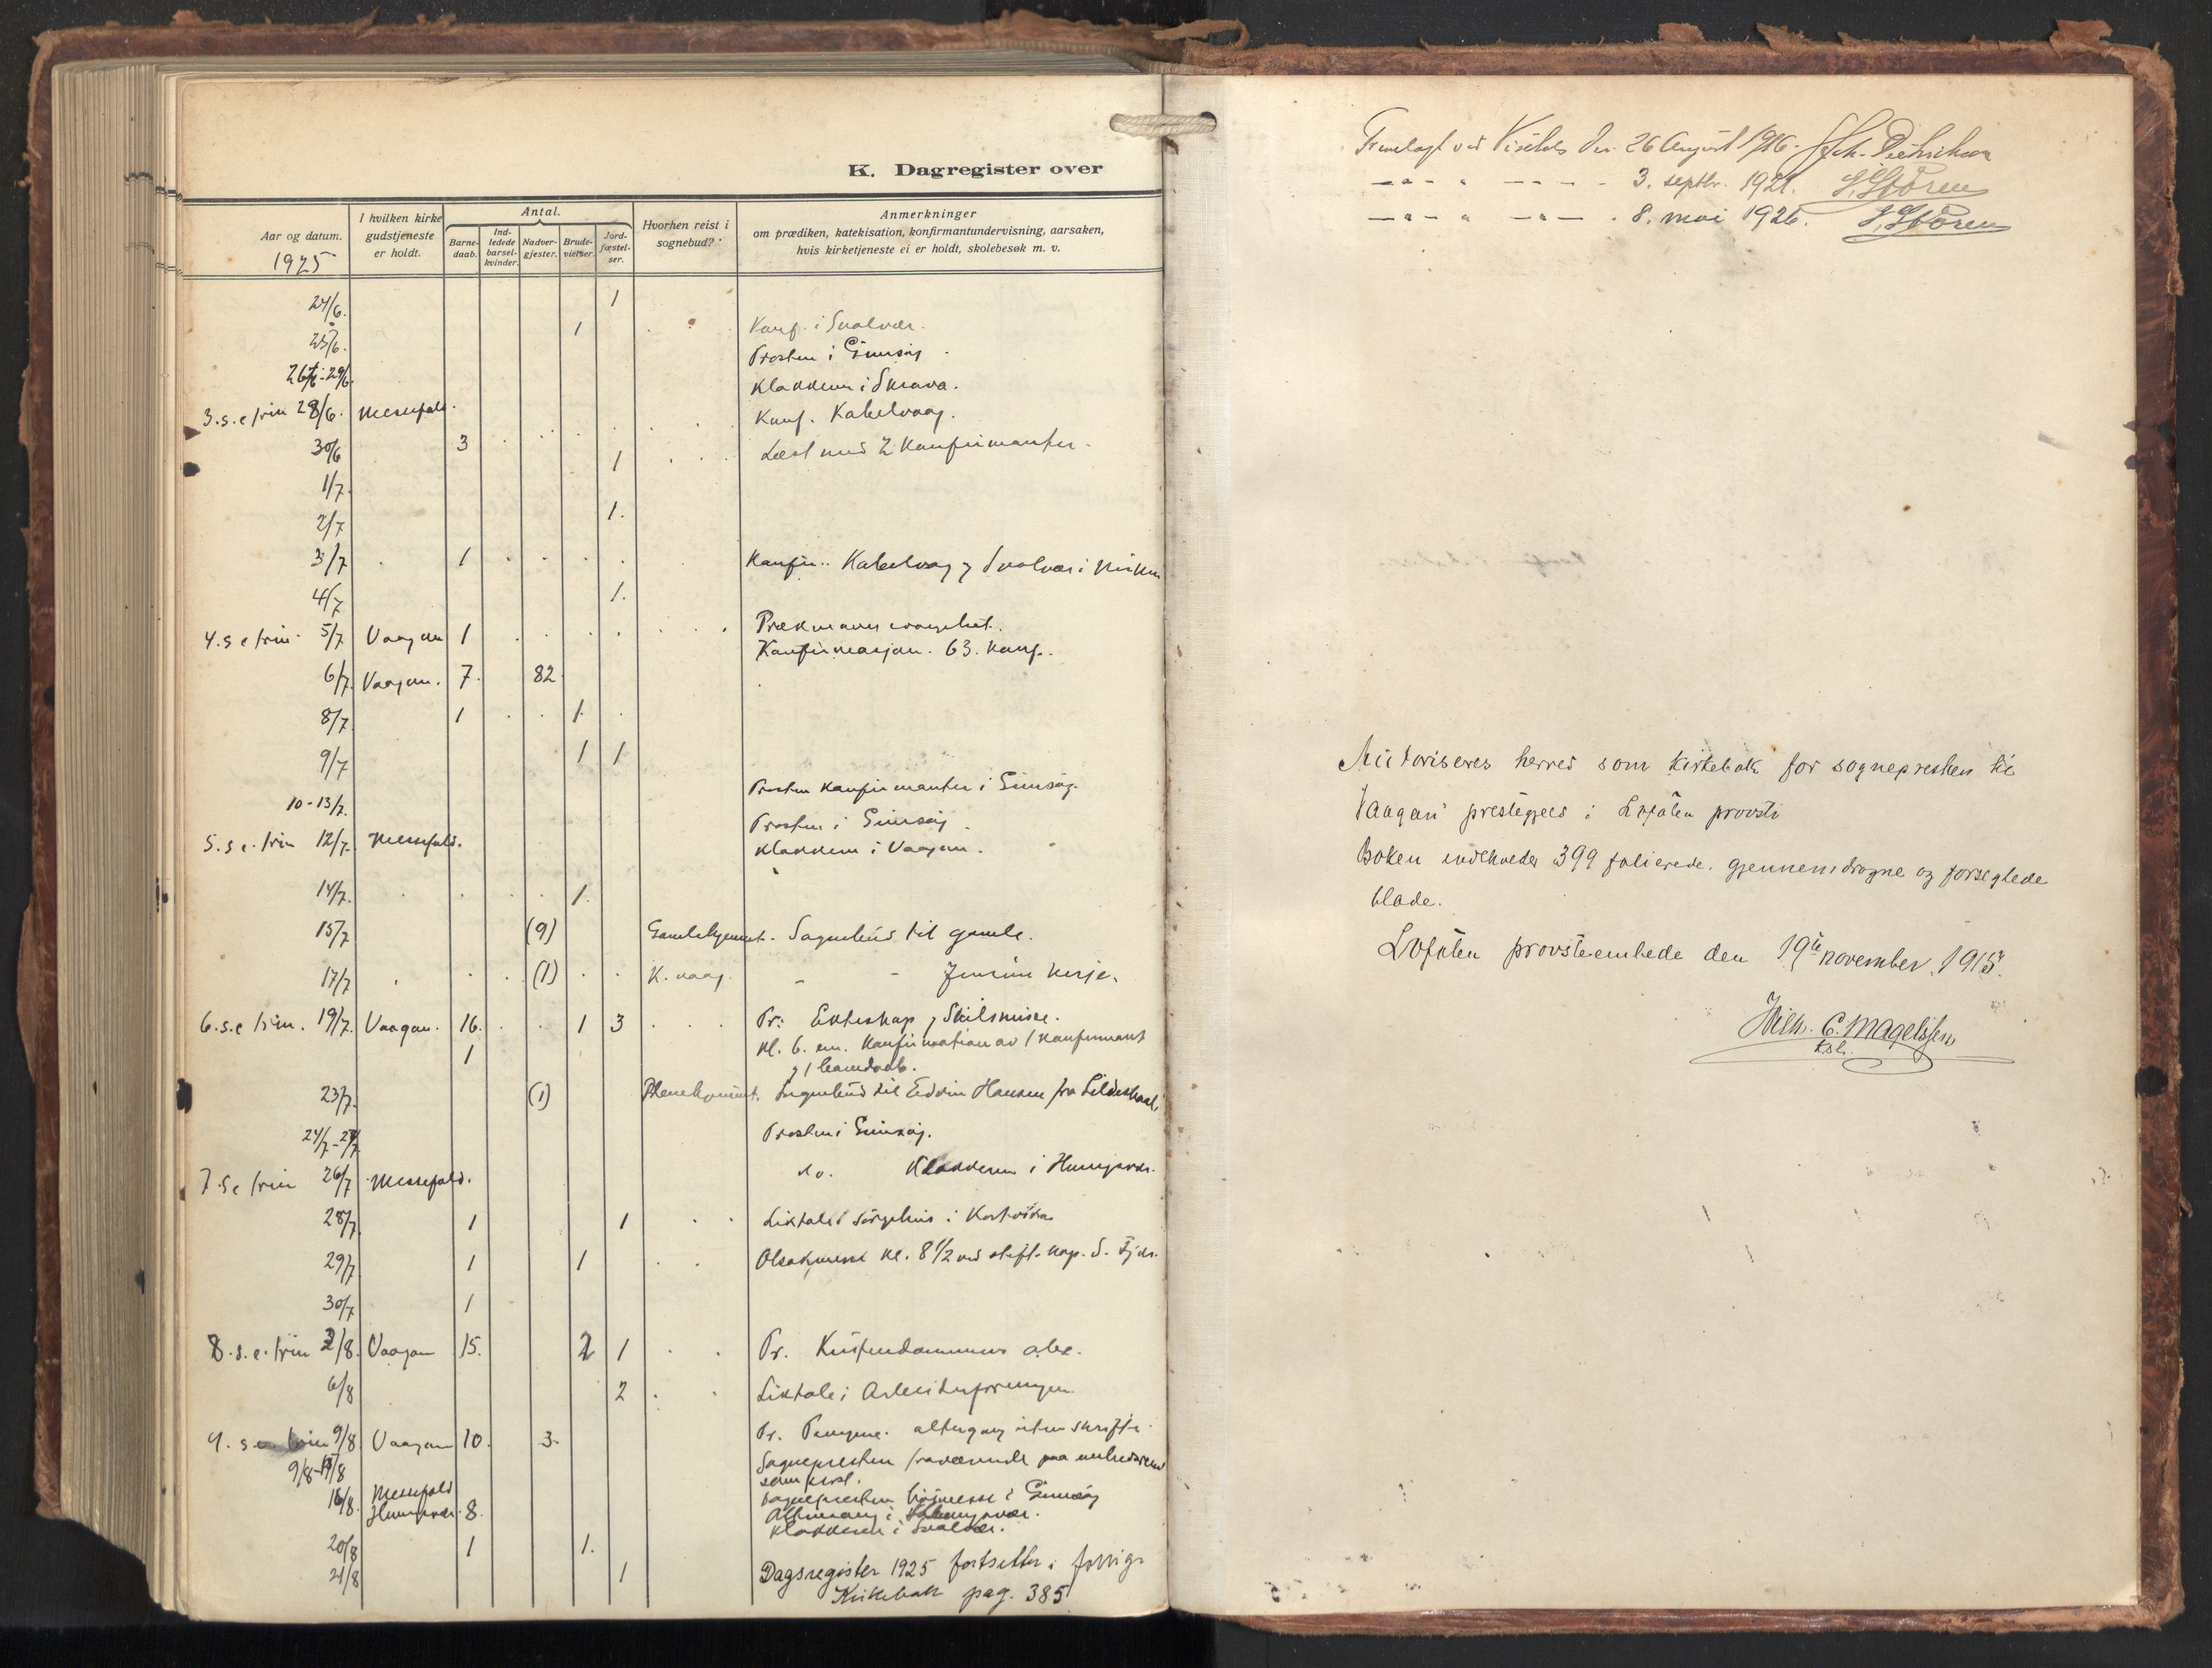 K. Dagregister over
Aar og datum.
1925
I hvilken kirke
gudstjeneste
er holdt.
Antal.
Barne-
daab.
Ind-
ledede
barsel-
kvinder.
Nadver-
gjester.
Brude-
vielser.
Jord-
fæstel-
ser.
Hvorhen reist i
sognebud?
Anmerkninger
om prædiken, katekisation, konfirmantundervisning, aarsaken,
hvis kirketjeneste ei er holdt, skolebesøk m. v.
24/6. 1
25/6. 1 Konf. i Svolvær.
26/6-29/6. Prosten i Gimsøy.
3.s.e trin 28/6. Messefald. Klokkeren i Skrova.
Konf. Kabelvaag.
30/6 3 1 Læst med 2 Konfirmanter.
1/7.
2/7 1.
3/7 1 Konfir.. Kabelvaag og Svolvær i Kirken
4/7 1.
4.s e trin 5/7 Vaagan 1
Konfirmasjon. 63. konf.
6/7. Vaagan. 7. 82
8/7. 1 1.
9/7 1 1
10-13/7. Prosten konfirmanter i Gimsøy.
5.s e. trin 12/7. Messefald. Prosten i Gimsøy.
Klokkeren i Vaagan.
14/7. 1.
15/7 (9) Gamlehjemmet. Sognebud til gamle.
17/7 (1) K. vaag. - -
6.s.e trin. 19/7. Vaagan. 16. 1 3 Pr: Ekteskap og Skilsmisse.
1 Kl. 6. em. Konfirmation av 1 konfirmant
og 1 barnedaab.
23/7. (1) Sognebud til Edvin Hansen fra
24/7-27/7 Prosten i Gimsøy.
7.s e trin 26/7 Messefald. do. Klokkeren i
28/7. 1 1 Liktale i Sørgehus i
29/7 1 1 Olsokmesse kl. 8 1/2 ved stift. kap. S.
30/7 1
8.s.e. trin 2/8. Vaagan 15. 2 1 Pr.
6/8 2 Liktale i Arbeiderforeningen.
9. s e. trin 9/8. Vaagan 10. 3. Pr. Pengene. altergang uten skrifte.
9/8-15/8 Sognepresten fraværende paa
som
16/8. Messefald Sognepresten høimesse i Gimsøy
8.
Klokkeren i Svolvær.
20/8 1 1.
21/8 1 Dagsregister 1925 fortsetter i forrige
Kirkebok pag. 385
Fremlagt ved Visitats den 26 August 1916.
— " - " — - - - 3. septbr. 1921. S. Støren
— " - " — " — . 8. mai 1926. S. Støren
Autoriseres herved som kirkebok for sognepresten til
Vaagan prestegjeld i Lofoten provsti
Boken indeholder 399 folierede, gjennemdragne og forseglede
blade.
Lofoten provsteembede den 19de november 1915.
Wilh. C. Magelssen
kst.